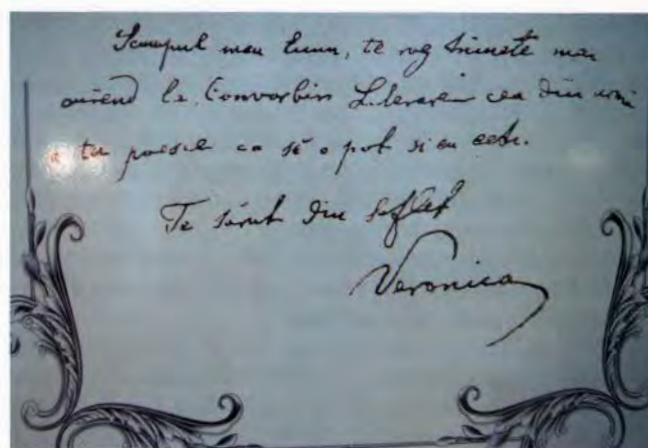 Scumpul meu Emin, te rog trimete mai
curênd la Convorbiri Literare cea din urmă
a ta poesie ca sĕ o pot și eu ceti.
Te sărut din suflet
Veronica